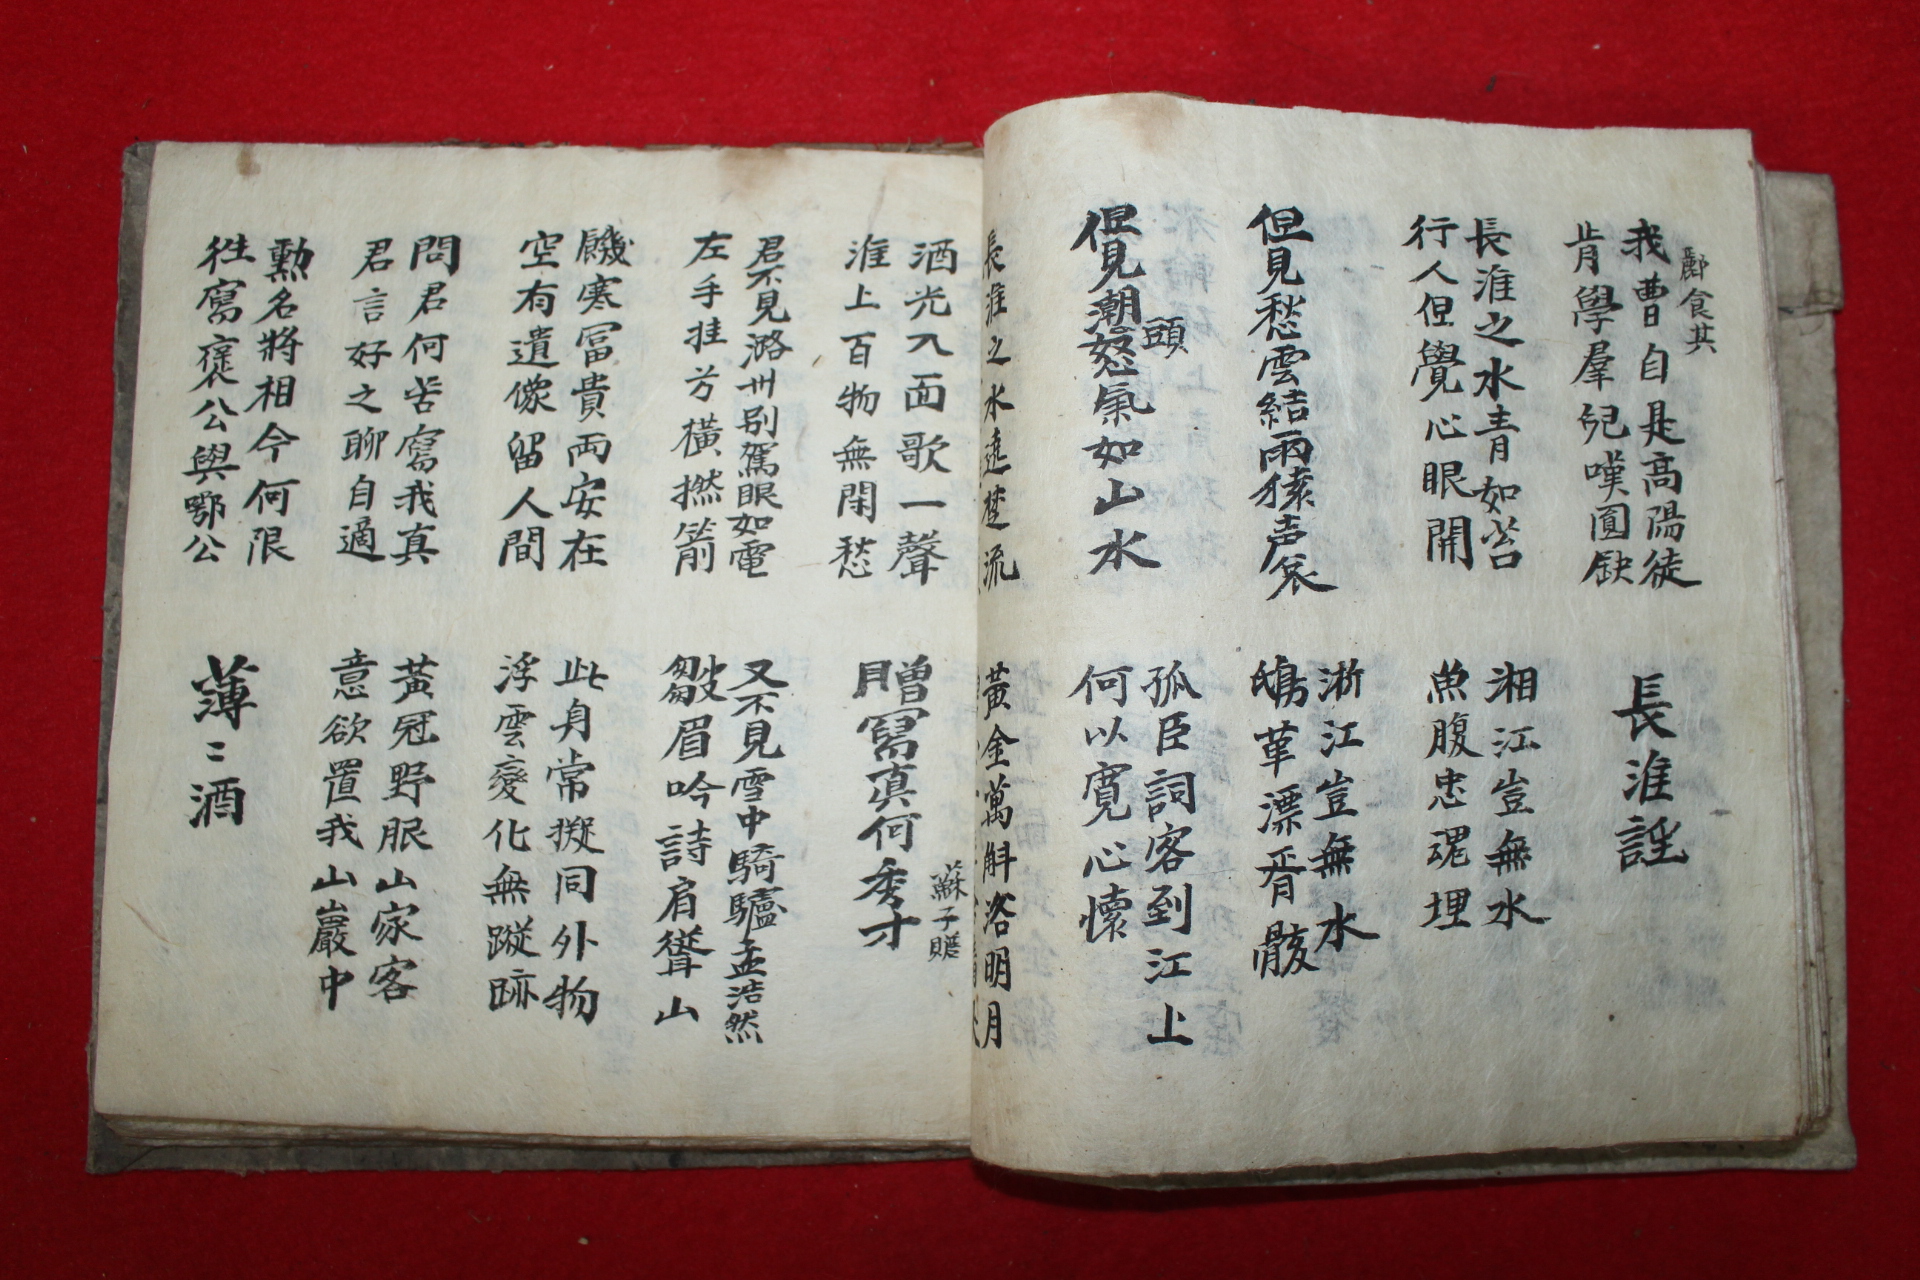 酈食其
我曹自是高陽徒
肯學羣兒嘆圓缺
長淮謠
長淮之水青如苔
行人但覺心眼開
湘江豈無水
魚腹忠魂埋
但見愁雲結雨猿声哀
浙江豈無水
鴟革漂胥骸
但見潮頭怒氣如山水
孤臣詞客到江上
何以寬心懷
長淮之水遶楚流
黃金萬斛浴明月
酒光入面歌一聲
淮上百物無閑愁
贈冩真何秀才
蘇子瞻
君不見潞州別駕眼如電
左手挂弓橫撚箭
又不見雪中騎驢孟浩然
皺眉吟詩肩聳山
饑寒冨貴両安在
空有遺像留人間
此身常擬同外物
浮雲變化無蹤跡
問君何苦寫我真
君言好之聊自適
黃冠野服山家客
意欲置我山巖中
勲名將相今何限
徃寫褒公與鄂公
薄〻酒